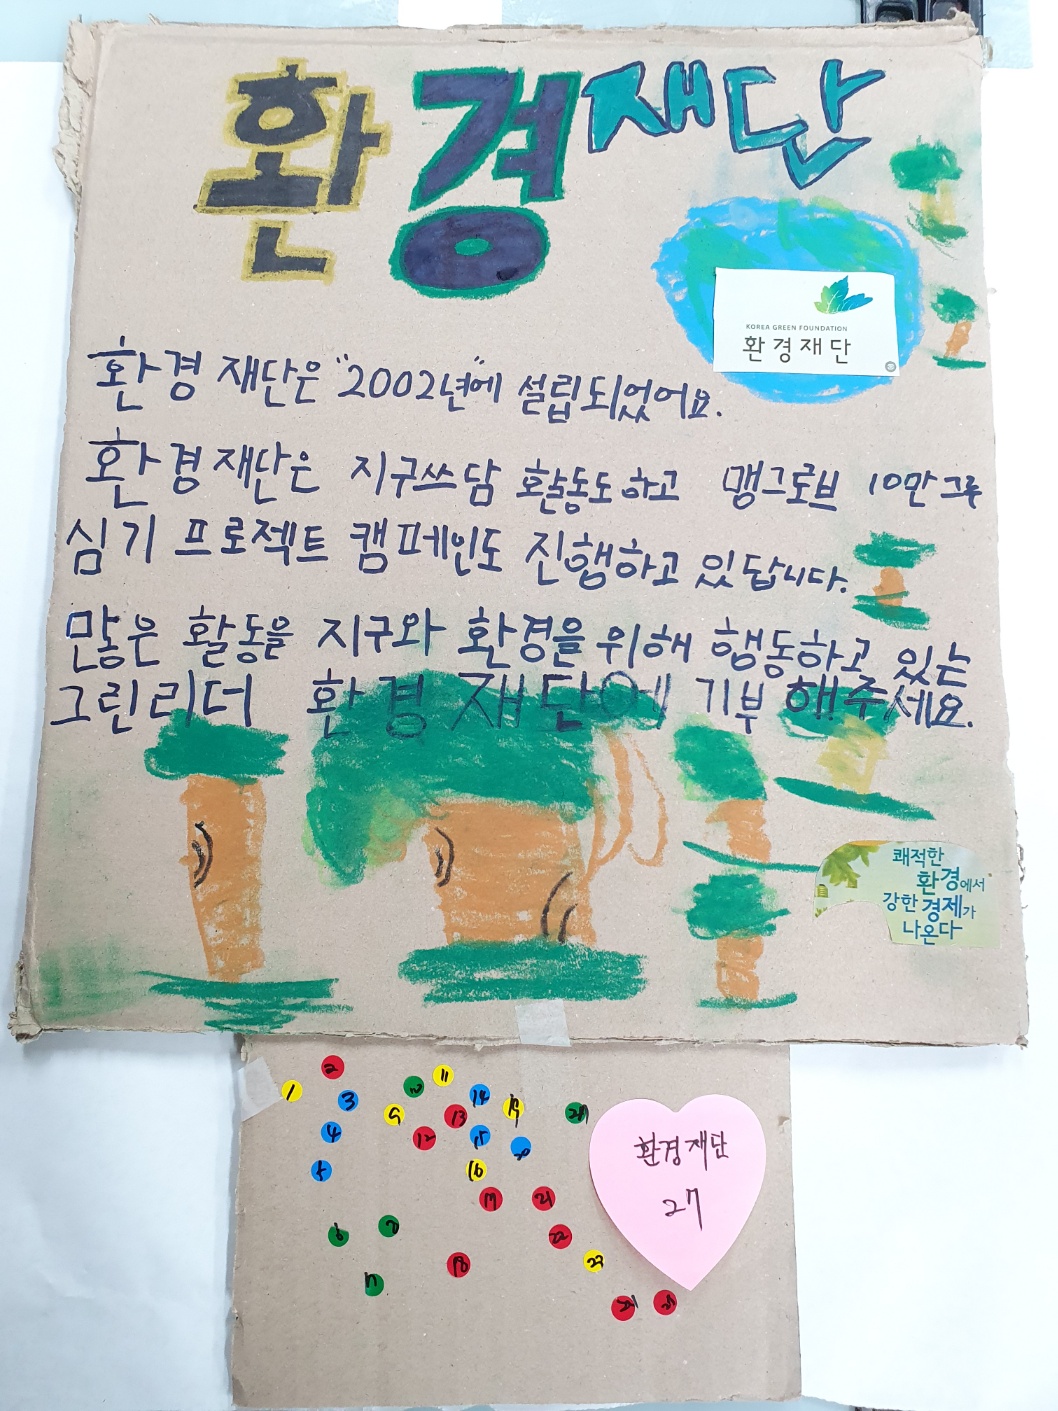 환경재단
KOREA GREEN FOUNDATION
환경재단
환경재단은 "2002년"에 설립되었어요.
환경재단은 지구쓰담 활동도하고 맹그로브 10만그루
심기 프로젝트 캠페인도 진행하고 있답니다.
많은 활동을 지구와 환경을 위해 행동하고 있는
그린리더 환경재단에 기부 해주세요.
쾌적한
환경에서
강한 경제가
나온다
환경재단
27
1
2
3
4
5
6
9
10
11
12
13
14
15
16
17
18
19
20
21
22
23